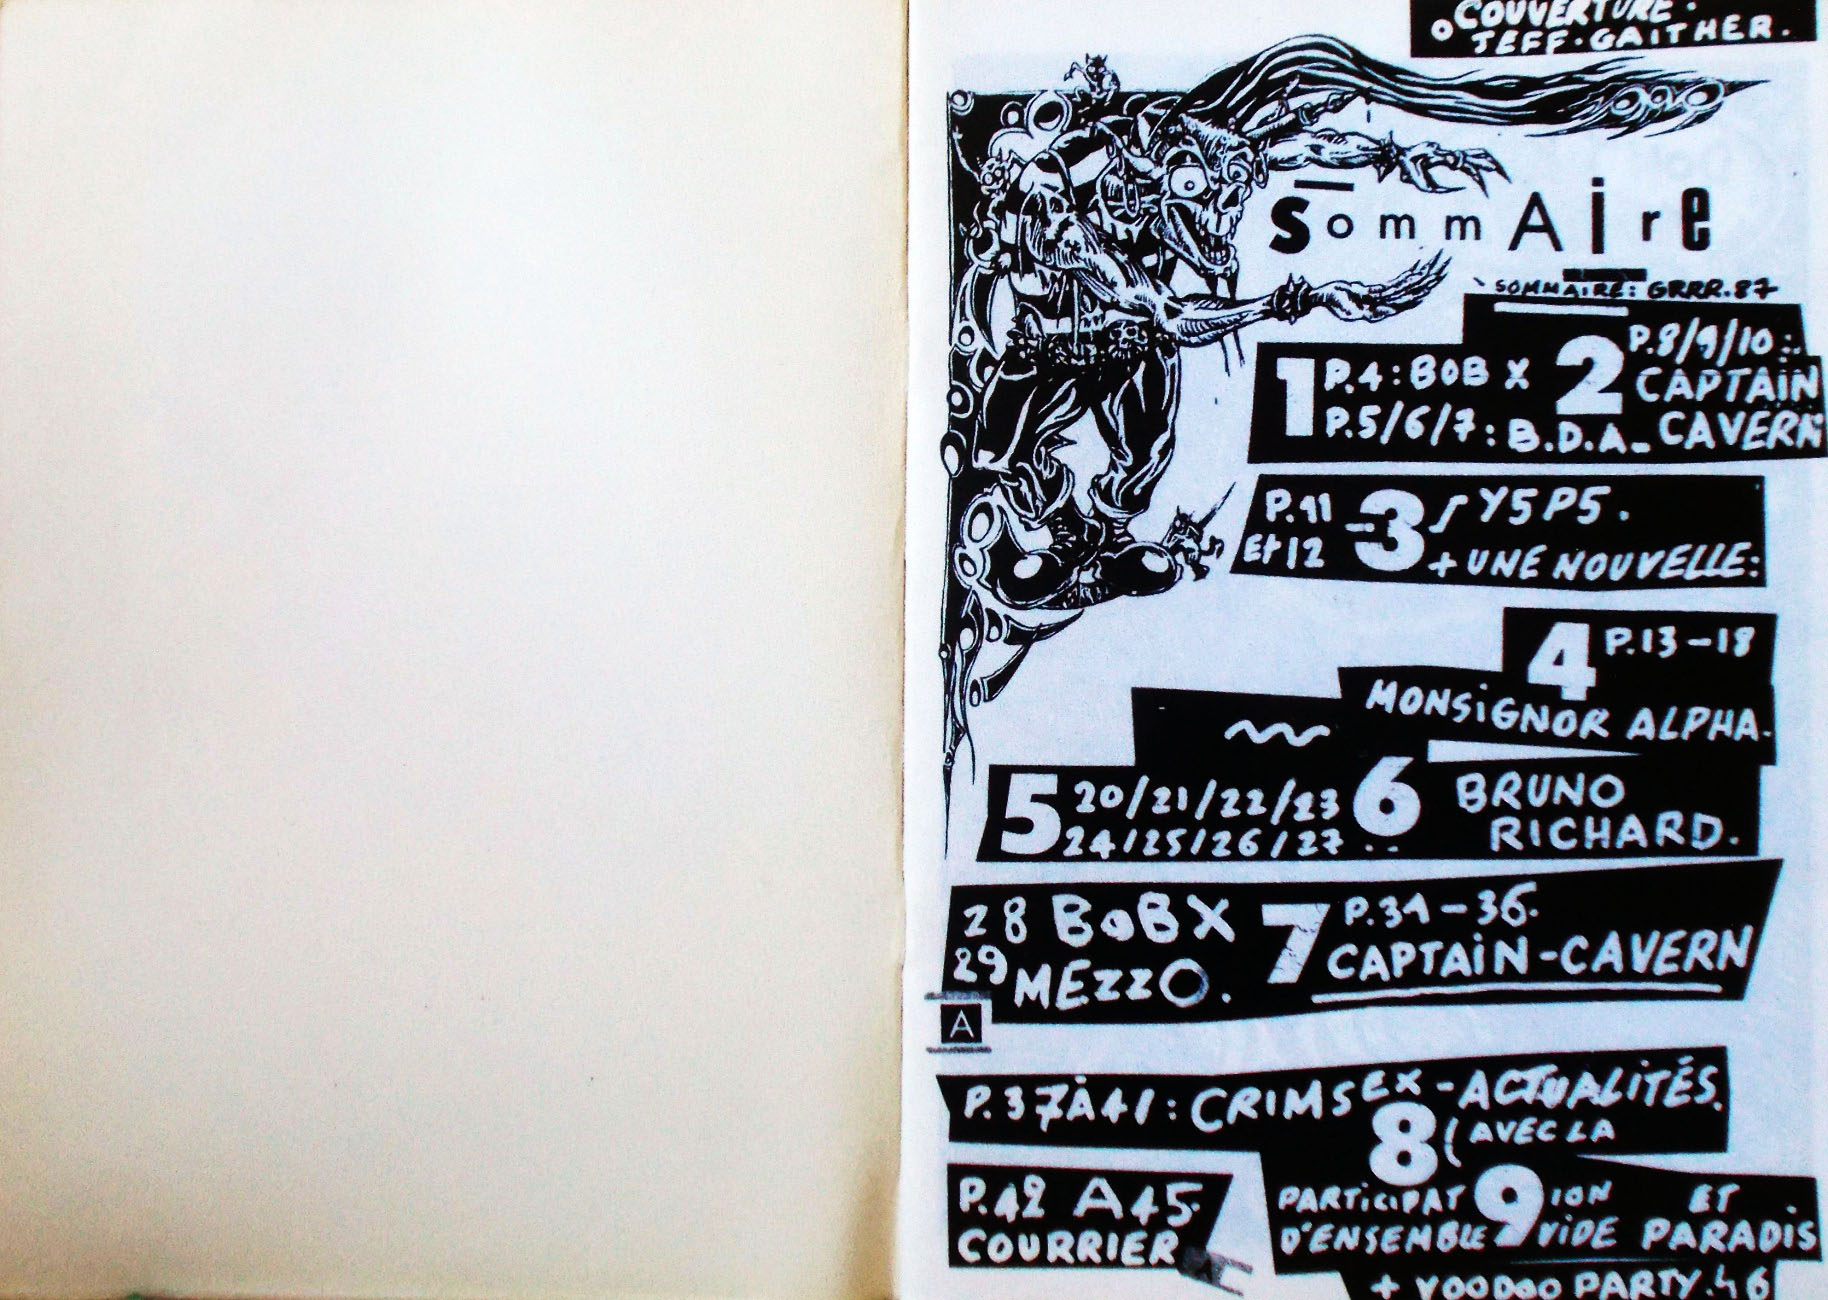 COUVERTURE.
JEFF.GAITHER.
SommAire
SOMMAIRE: GRRR.87
1 P.4: BOB X
P.5/6/7: B.D.A_
2 P.8/9/10:
CAPTAIN
CAVERN
P.11
Et 12
3 SY5P5.
+ UNE NOUVELLE:
4 P.13-18
MONSIGNOR ALPHA.
5 20/21/22/23
24/25/26/27..
6 BRUNO
RICHARD.
28 BOBX
29 MEZZO.
7 P.31-36.
CAPTAIN-CAVERN
A
P.37À41: CRIMSEX-ACTUALITÉS.
8 (AVEC LA
PARTICIPAT 9 ION ET
D'ENSEMBLE VIDE PARADIS
P.42 A 45.
COURRIER
+ VOODOO PARTY.46